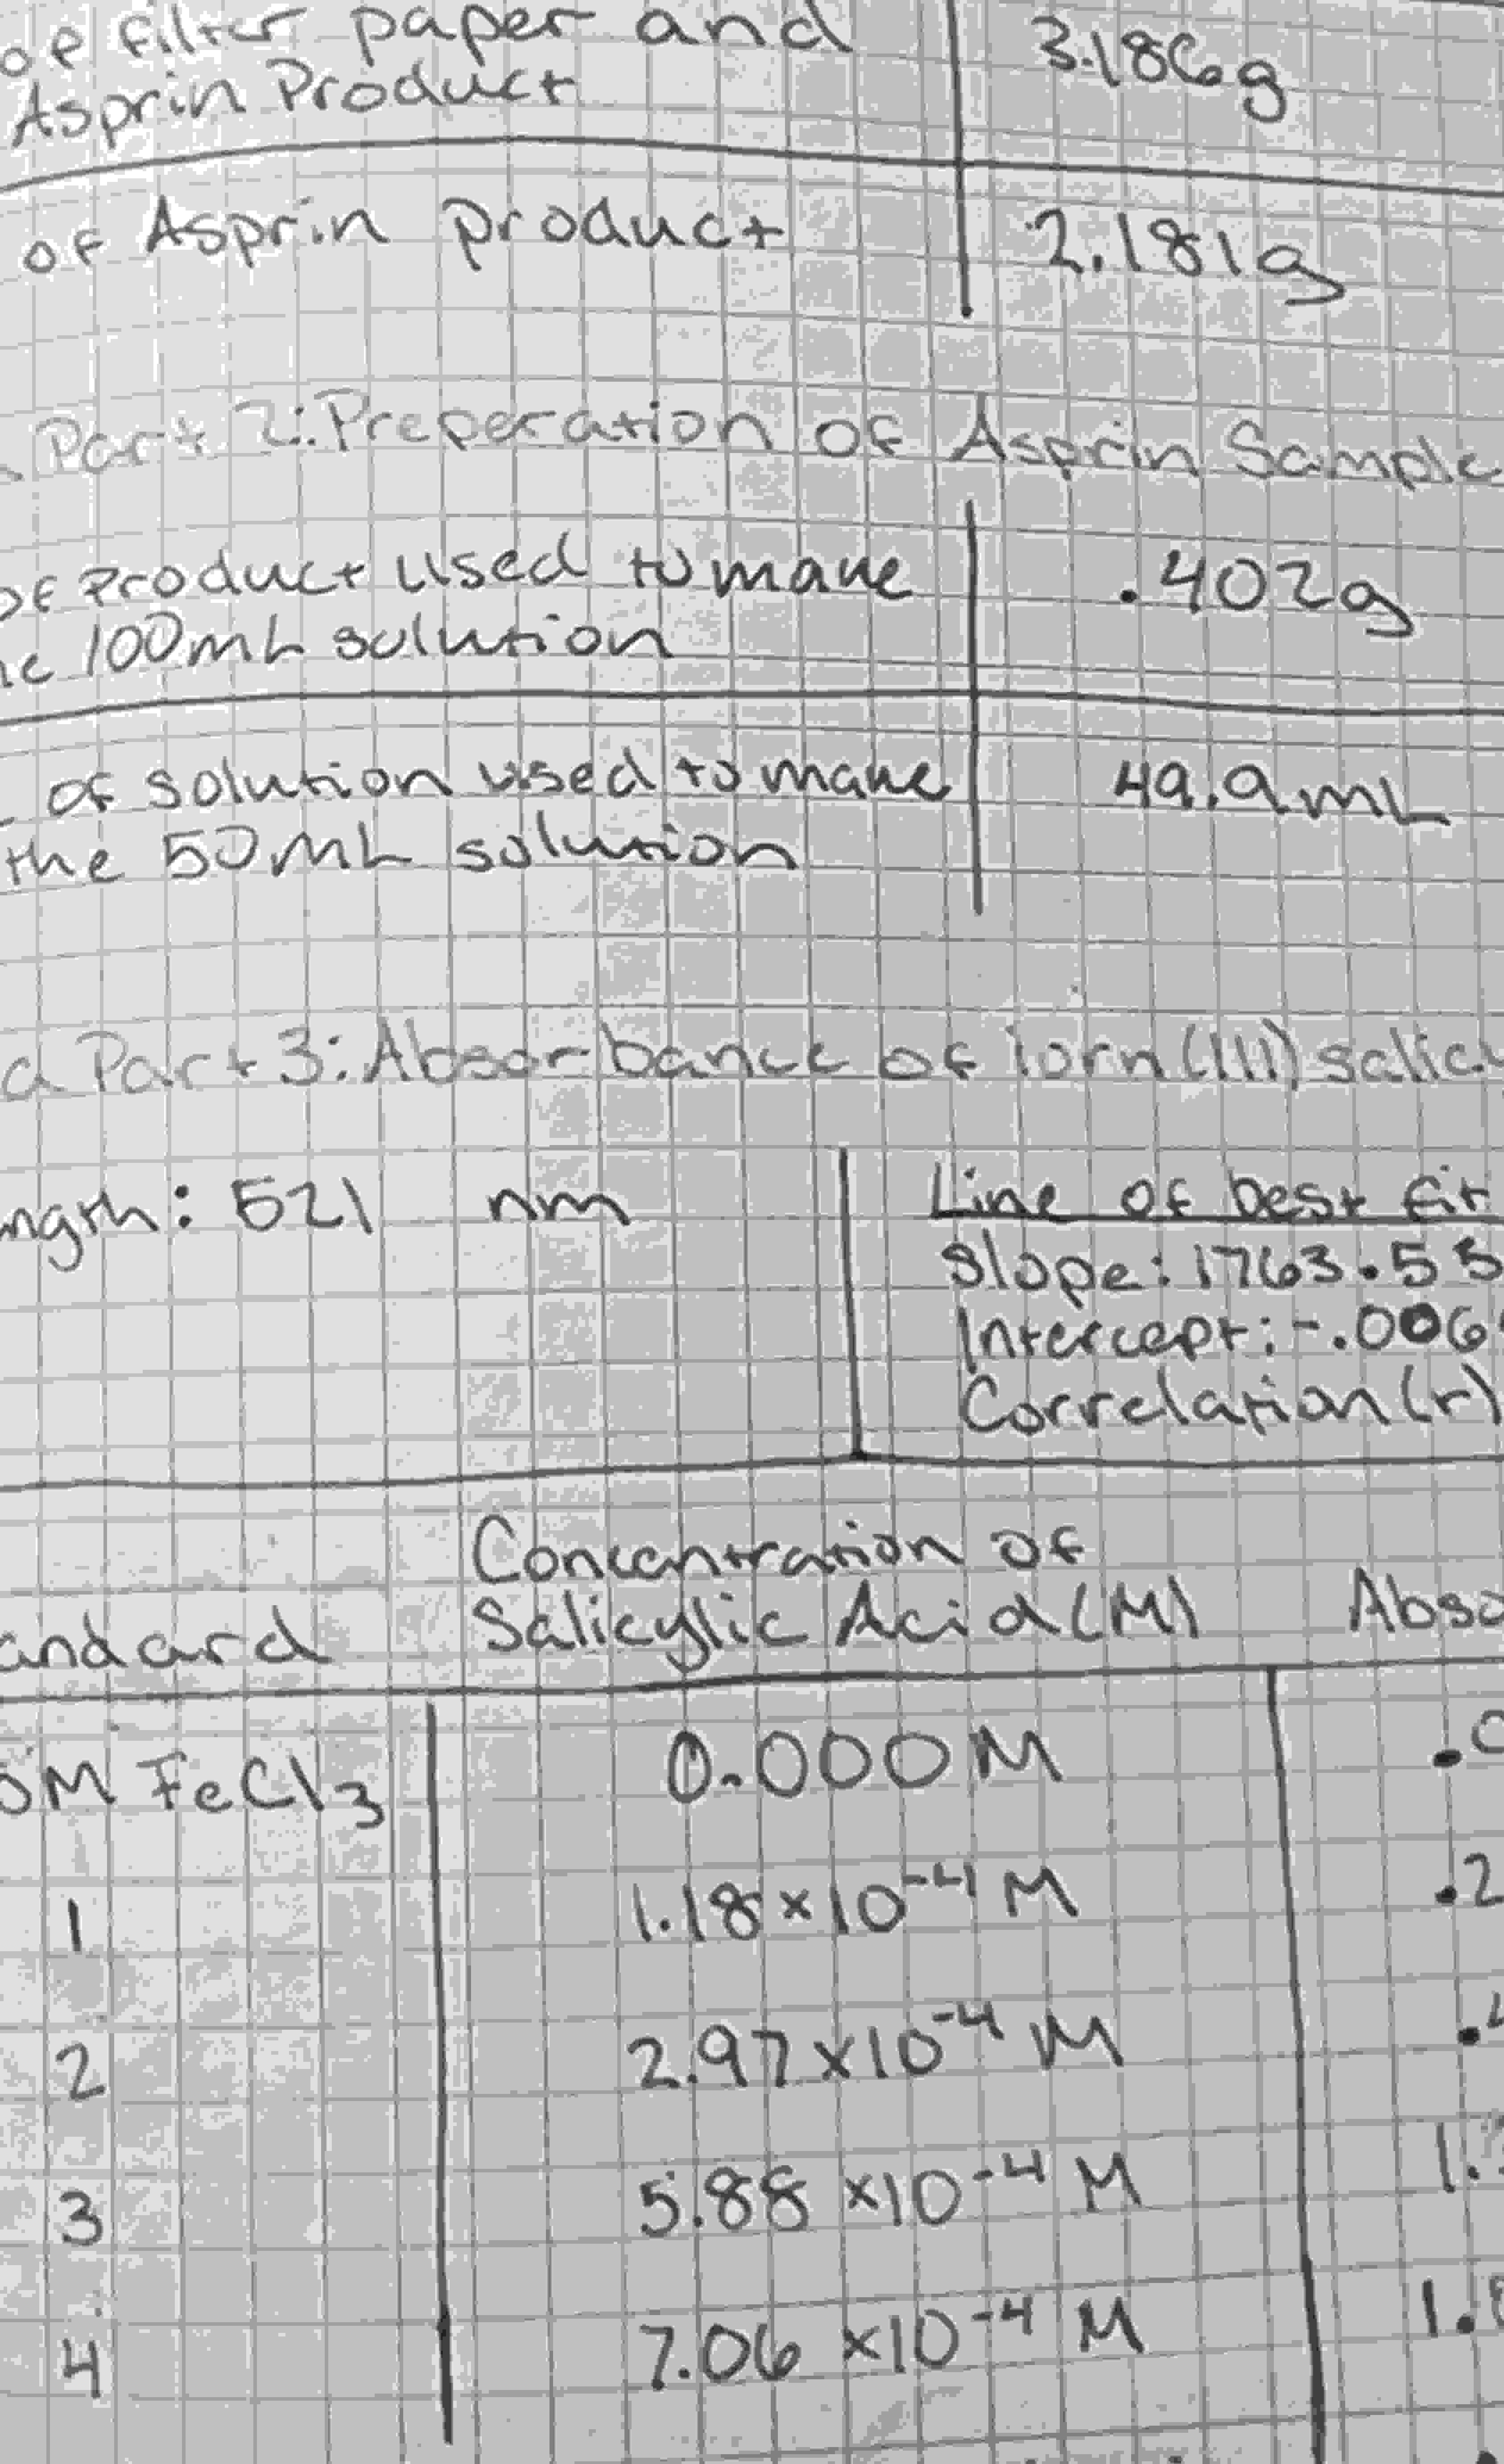 of filter paper and 3.186g
Asprin Product
of Asprin product 2.181g
Part 2: Preperation of Asprin Sample
of Product used to make .402g
100mL solution
of solution used to make 49.9mL
the 50mL solution
a Part 3: Absorbance of iorn(III) salicy
ngth: 521 nm
Line of best fit
Slope: 1763.53
Intercept: -.006
Correlation(r)
Concentration of
andard Salicylic Acid (M) Abso
0M FeCl3 0.000 M .0
1 1.18 x 10-4 M .2
2 2.97 x10-4 M .4
3 5.88 x10-4 M 1.
4 7.06 x10-4 M 1.8